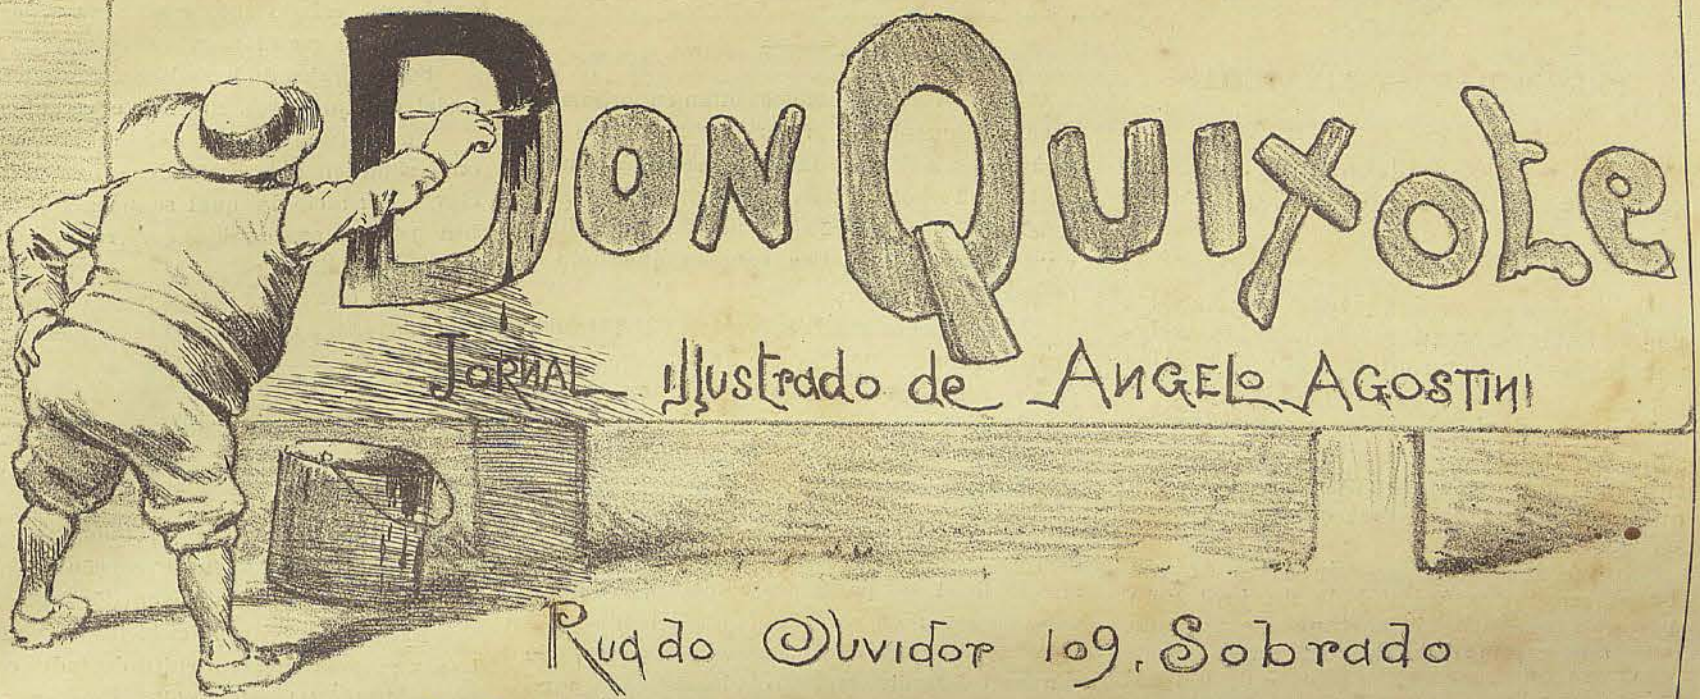 DON QUIXOTE
JORNAL illustrado de ANGELO AGOSTINI
Rua do Ouvidor 109, Sobrado